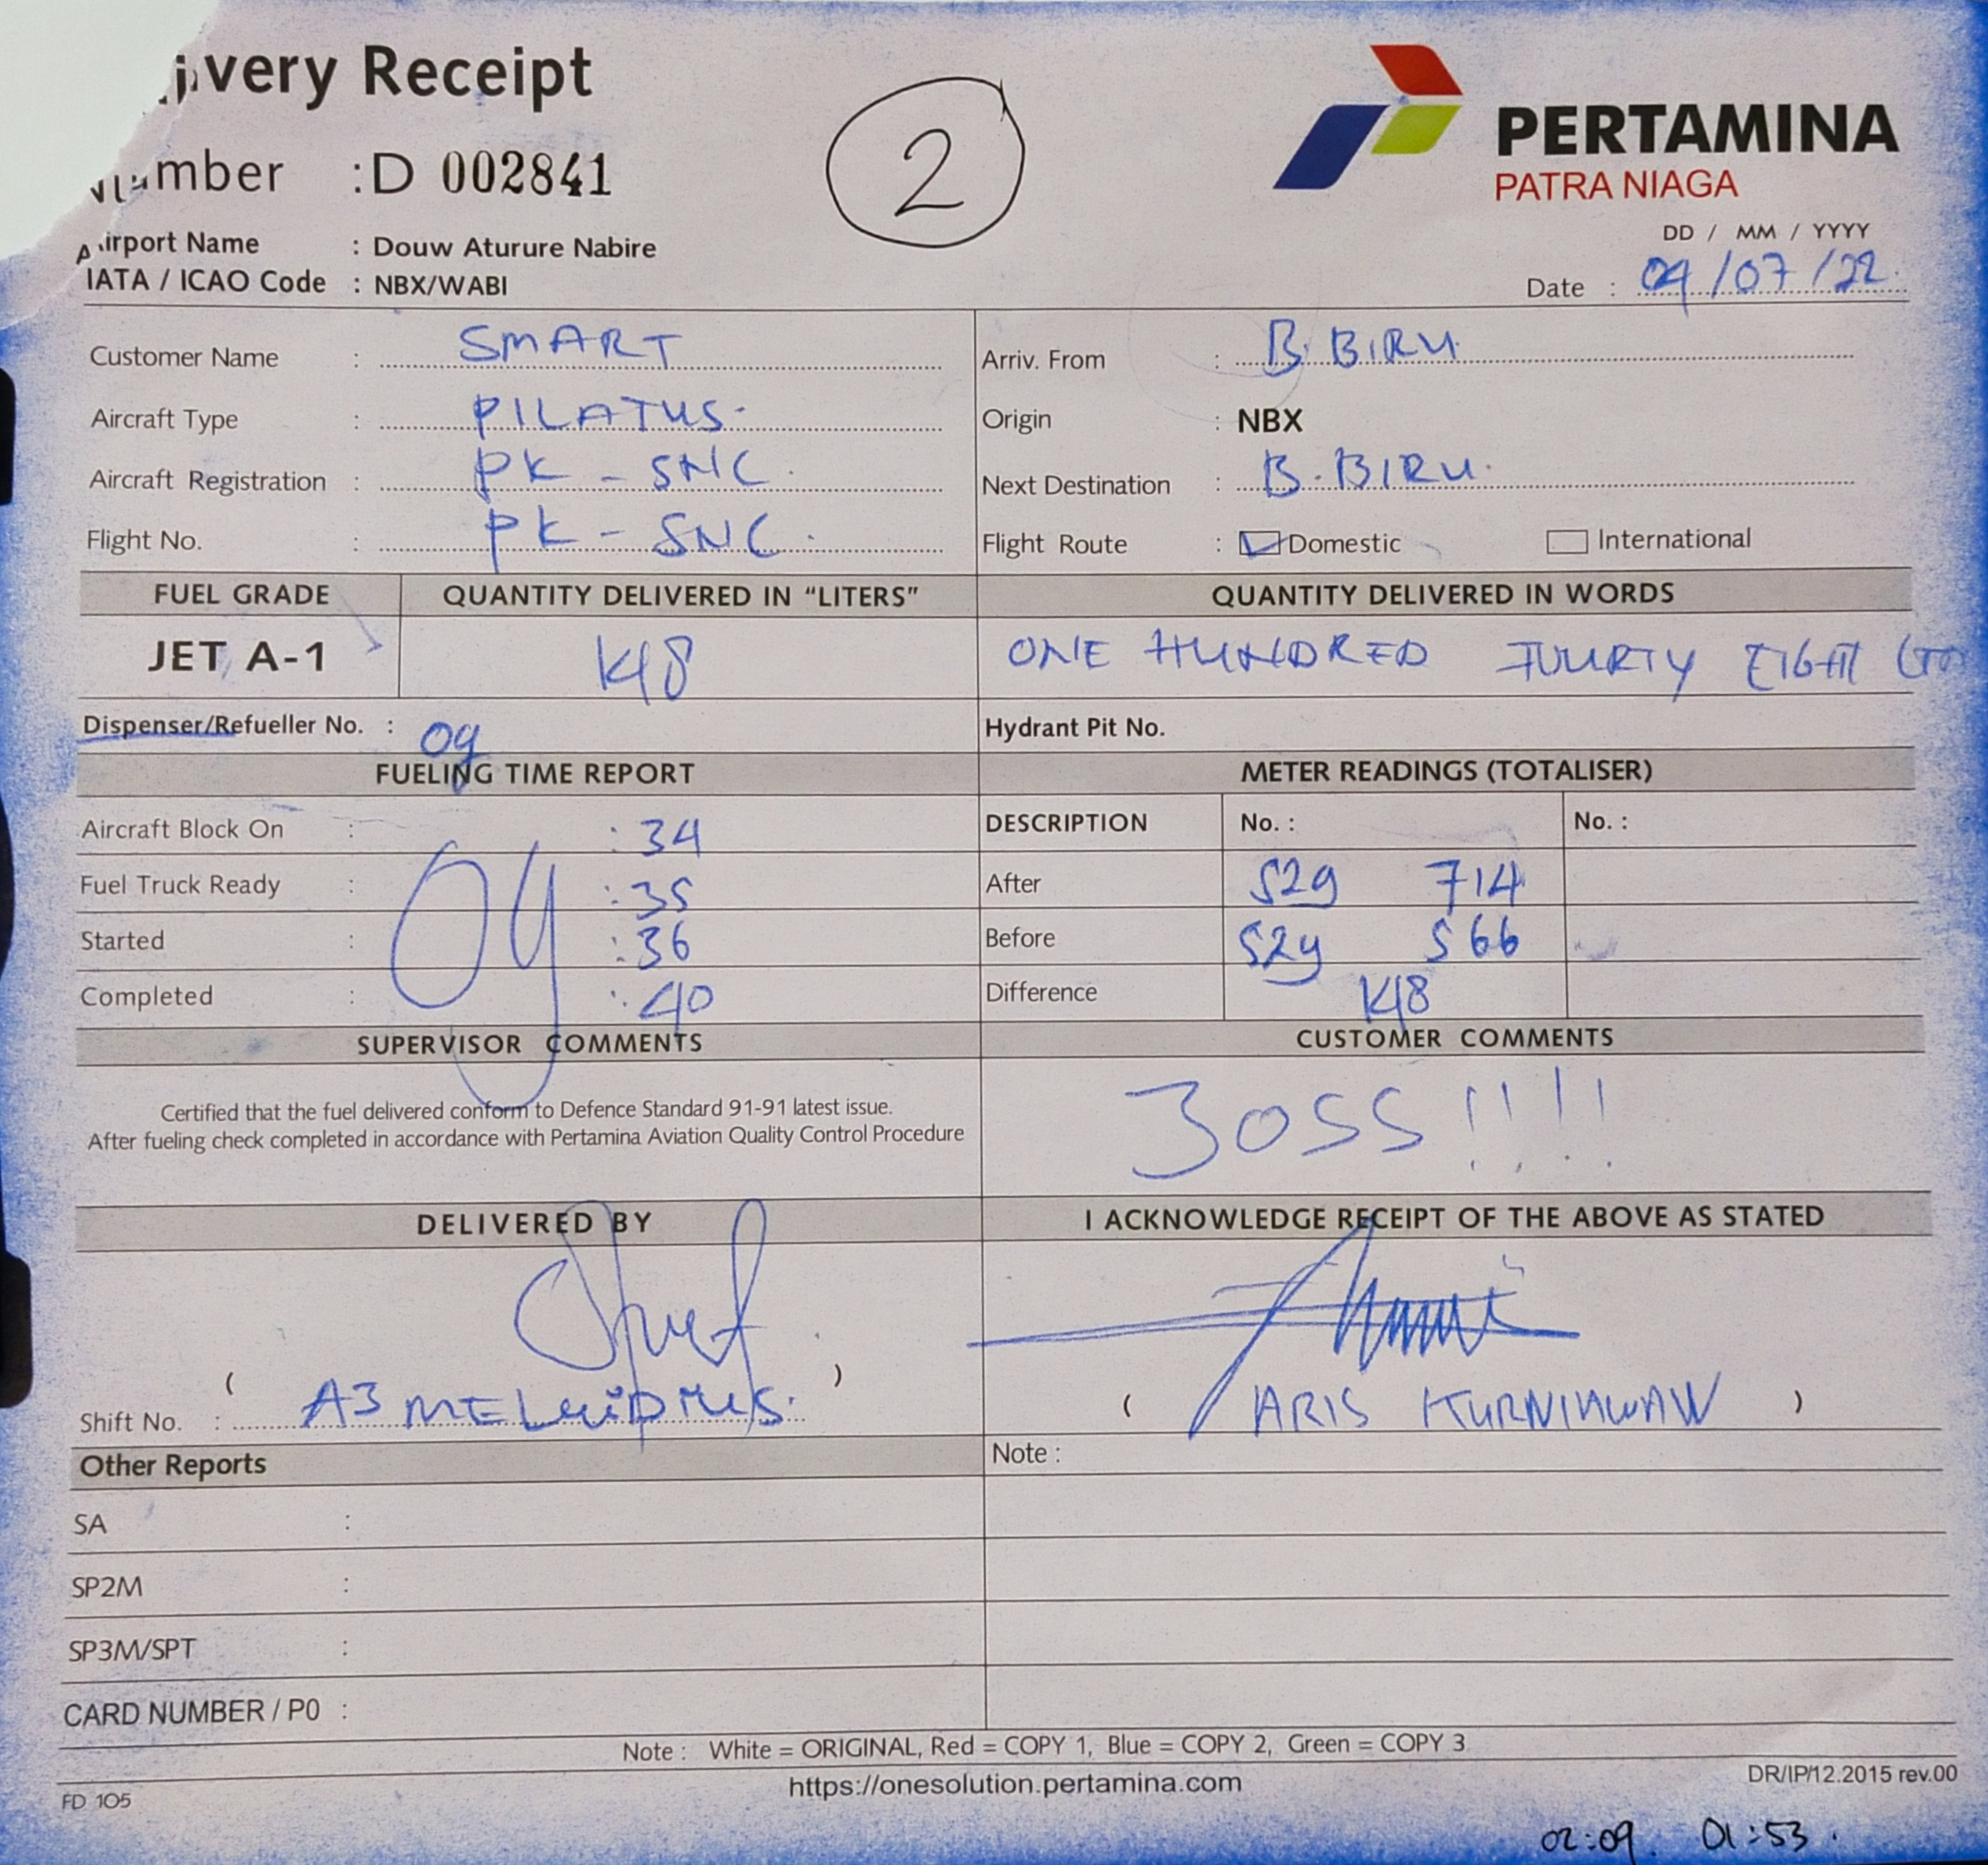 ivery Receipt
2
PERTAMINA
PATRA NIAGA
Number : D 002841
Airport Name : Douw Aturure Nabire
IATA / ICAO Code : NBX/WABI
DD / MM / YYYY
Date : 09/07/22
Customer Name : SMART
Arriv. From : B. BIRU
Aircraft Type : PILATUS
Origin : NBX
Aircraft Registration : PK - SNC
Next Destination : B. BIRU
Flight No. : PK - SNC
Flight Route : Domestic International
FUEL GRADE QUANTITY DELIVERED IN “LITERS” QUANTITY DELIVERED IN WORDS
JET A-1 148 ONE HUNDRED FOURTY EIGHT
Dispenser/Refueller No. : 09 Hydrant Pit No.
FUELING TIME REPORT METER READINGS (TOTALISER)
Aircraft Block On : 09 : 34 DESCRIPTION No. : No. :
Fuel Truck Ready : : 35 After 529 714
Started : : 36 Before 529 566
Completed : : 40 Difference 148
SUPERVISOR COMMENTS CUSTOMER COMMENTS
Certified that the fuel delivered conform to Defence Standard 91-91 latest issue.
After fueling check completed in accordance with Pertamina Aviation Quality Control Procedure
JOSS !!!!
DELIVERED BY I ACKNOWLEDGE RECEIPT OF THE ABOVE AS STATED
( )
Shift No. : A3
( ARIS KURNIAWAN )
Other Reports Note :
SA :
SP2M :
SP3M/SPT :
CARD NUMBER / P0 :
Note : White = ORIGINAL, Red = COPY 1, Blue = COPY 2, Green = COPY 3
https://onesolution.pertamina.com
DR/IP/12.2015 rev.00
FD 105
02:09 01:53